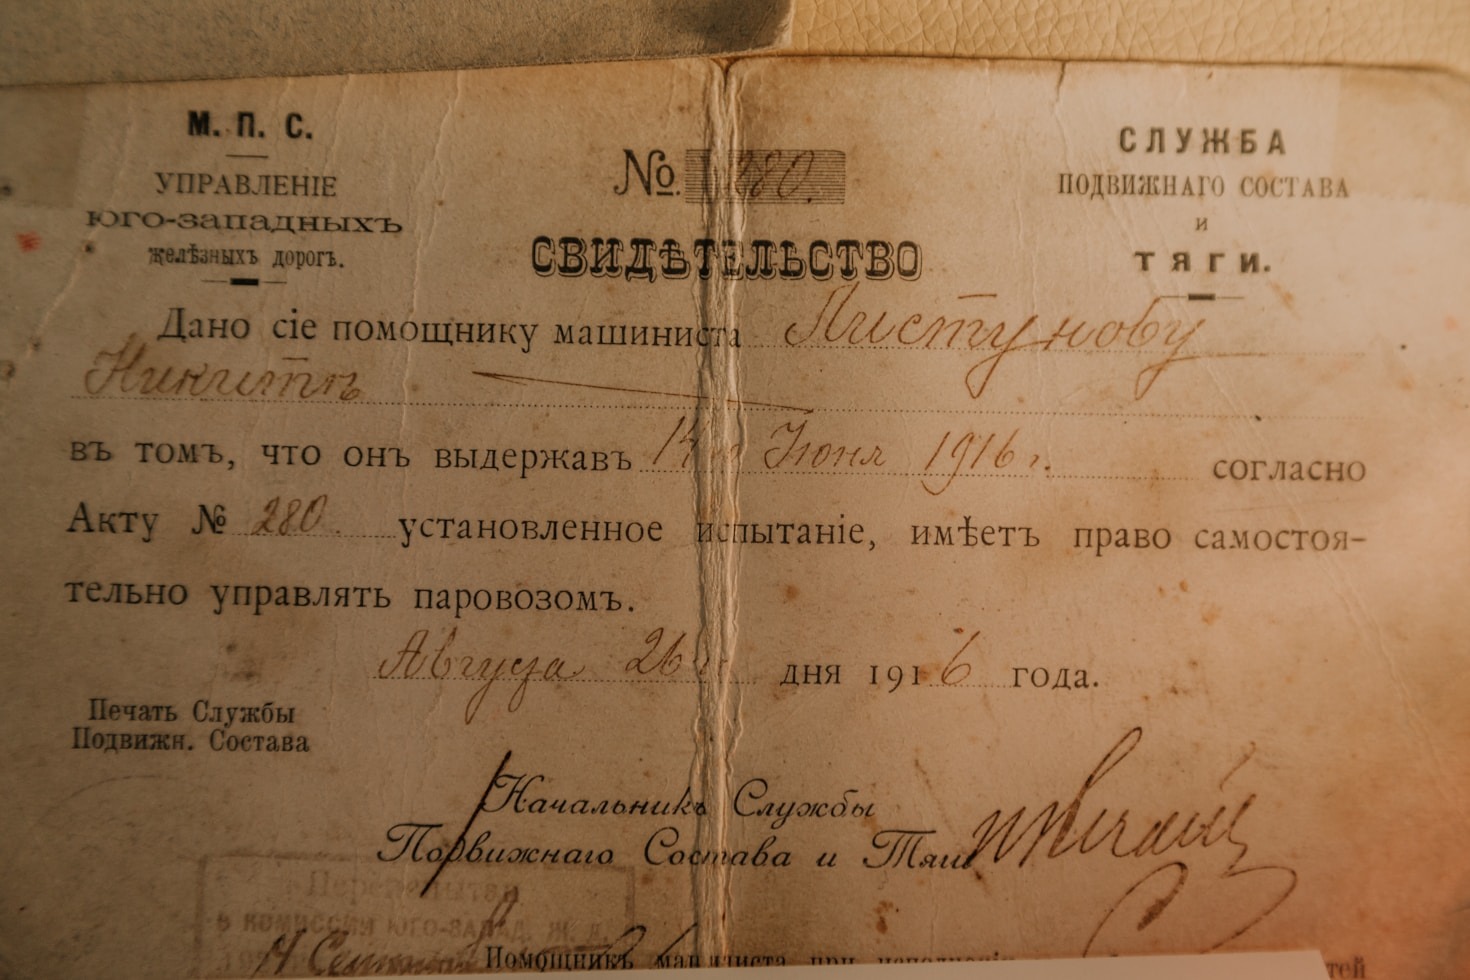 М. П. С.
УПРАВЛЕНІЕ
ЮГО-ЗАПАДНЫХЪ
желѣзныхъ дорогъ.
№ 280.
СЛУЖБА
ПОДВИЖНАГО СОСТАВА
и
ТЯГИ.
СВИДѢТЕЛЬСТВО
Дано сіе помощнику машиниста Листунову
Никитѣ
въ томъ, что онъ выдержавъ 14го Іюня 1916 г. согласно
Акту № 280. установленное испытаніе, имѣетъ право самостоя-
тельно управлять паровозомъ.
Августа 26 дня 1916 года.
Печать Службы
Подвижн. Состава
Начальникъ Службы
Подвижнаго Состава и Тяги
в комиссии Юго-Запад. Ж. д.
Помощникъ машиниста при